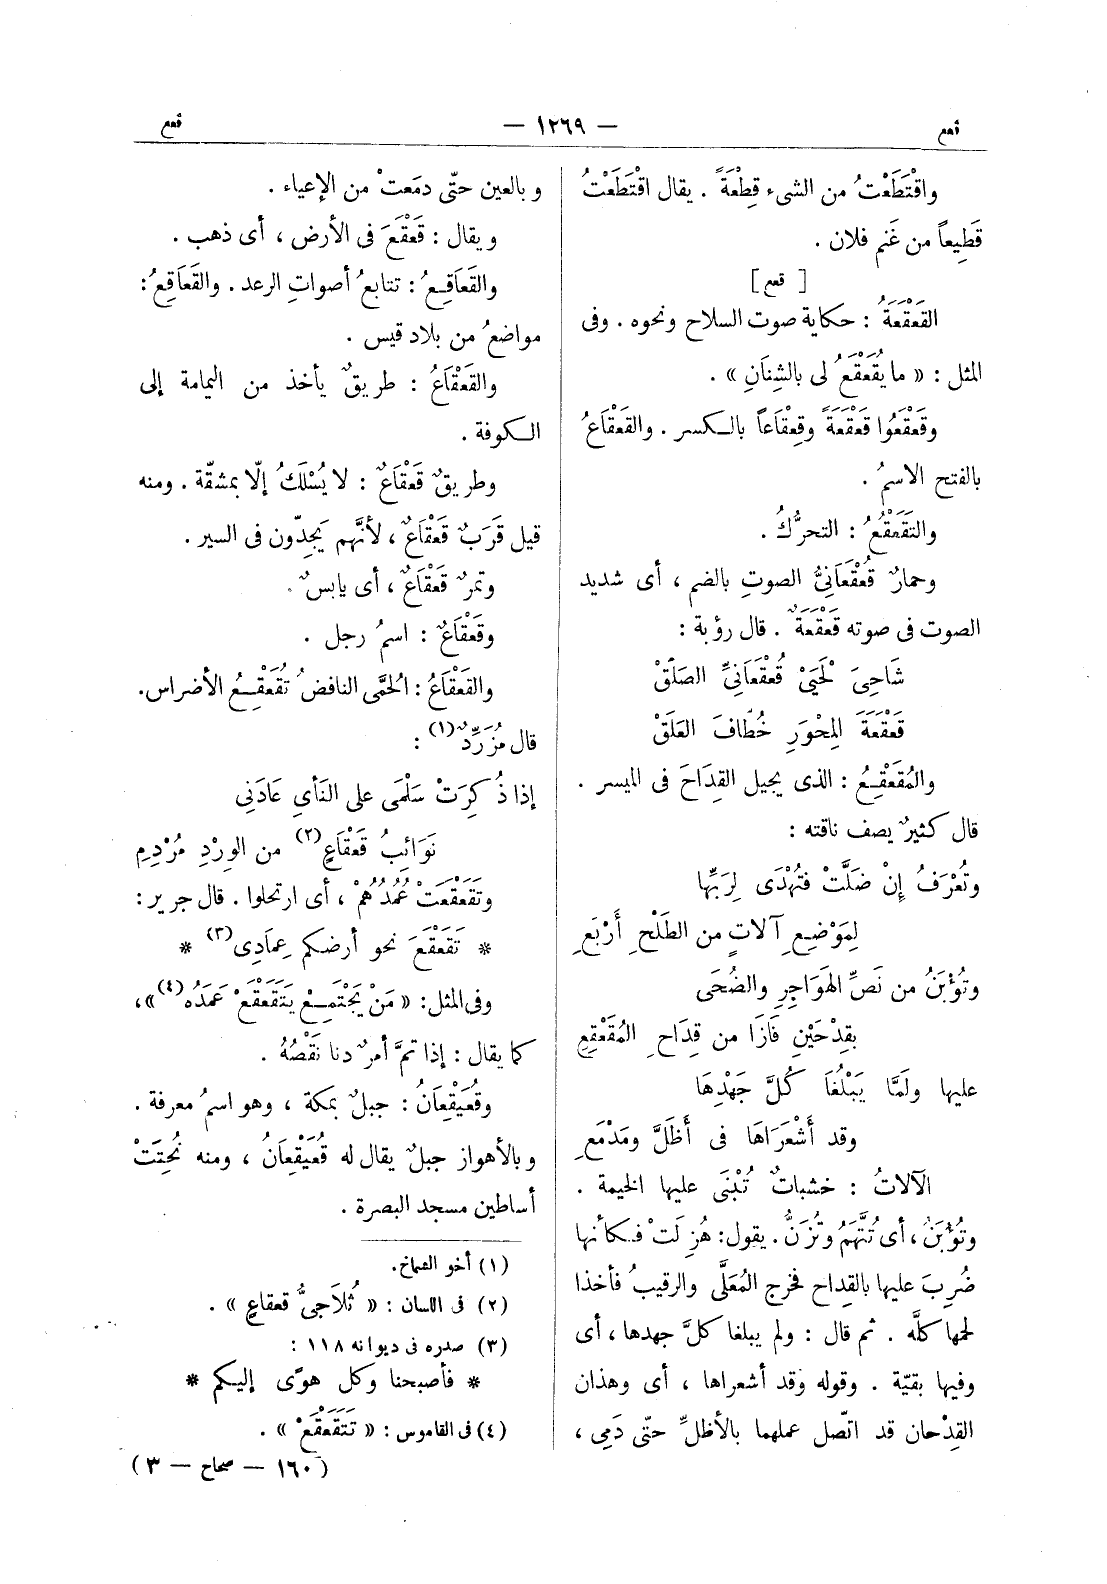 قعع
— ١٢٦٩ —
قعع
واقْتَطَعْتُ من الشىء قِطْعَةً . يقال اقْتَطَعْتُ
قَطِيعاً من غَنم فلان .
[ قعع ]
القَعْقَعَةُ : حكاية صوت السلاح ونحوه . وفى
المثل : « ما يُقَعْقَعُ لى بالشِنَانِ » .
وقَعْقَعُوا قَعْقَعَةً وقِعْقَاعاً بالكسر . والقَعْقَاعُ
بالفتح الاسمُ .
والتَقَعْقُعُ : التحرُّكُ .
وحمارٌ قُعْقَعَانِىُّ الصوتِ بالضم ، أى شديد
الصوت فى صوته قَعْقَعَةٌ . قال رؤبة :
شَاحِىَ لَحْيَىْ قُعْقَعَانِىِّ الصَلَقْ
قَعْقَعَةَ المِحْوَرِ خُطَّافَ العَلَقْ
والمُقَعْقِعُ : الذى يجيل القِدَاحَ فى الميسر .
قال كثيرٌ يصف ناقته :
وتُعْرَفُ إِنْ ضَلَّتْ فتُهْدَى لِرَبِّهَا
لِمَوْضِعِ آلاتٍ من الطَلْحِ أَرْبَعِ
وتُؤْبَنُ من نَصِّ الهَوَاجِرِ والضُحَى
بقِدْحَيْنِ فَازَا من قِدَاحِ المُقَعْقِعِ
عليها ولَمَّا يَبْلُغَا كُلَّ جَهْدِهَا
وقد أَشْعَرَاهَا فى أَظَلَّ ومَدْمَعِ
الآلاتُ : خشباتٌ تُبْنَى عليها الخيمة .
وتُؤْبَنُ ، أى تُتَّهَمُ وتُزَنُّ . يقول : هُزِلَتْ فكأنها
ضُرِبَ عليها بالقِداح فخرج المُعَلَّى والرقيبُ فأخذا
لحمها كلَّه . ثم قال : ولم يبلغا كلَّ جهدها ، أى
وفيها بقيّة . وقوله وقد أشعراها ، أى وهذان
القِدْحان قد اتّصل عملهما بالأظلِّ حتّى دَمِى ،
وبالعين حتّى دمَعتْ من الإعياء .
ويقال : قَعْقَعَ فى الأرض ، أى ذهب .
والقَعَاقِعُ : تتابعُ أصواتِ الرعد . والقَعَاقِعُ :
مواضعُ من بلاد قيس .
والقَعْقَاعُ : طريقٌ يأخذ من اليمامة إلى
الكوفة .
وطريقٌ قَعْقَاعٌ : لا يُسْلَكُ إلّا بمشقّة . ومنه
قيل قَرَبٌ قَعْقَاعٌ ، لأنَّهم يَجِدّون فى السير .
وتمرٌ قَعْقَاعٌ ، أى يابسٌ .
وقَعْقَاعٌ : اسمُ رجل .
والقَعْقَاعُ : الحُمَّى النافضُ تُقَعْقِعُ الأضراس .
قال مُزَرِّدٌ (١) :
إذا ذُكِرَتْ سَلْمَى على النَأىِ عَادَنِى
نَوَائِبُ قَعْقَاعٍ (٢) من الوِرْدِ مُرْدِمِ
وتَقَعْقَعَتْ عُمُدُهُمْ ، أى ارتحلوا . قال جرير :
* تَقَعْقَعَ نحو أرضكم عِمَادِى (٣) *
وفى المثل : « مَنْ يَجْتَمِعْ يَتَقَعْقَعْ عَمَدُه (٤) » ،
كما يقال : إذا تمَّ أمرٌ دنا نَقْصُهُ .
وقُعَيْقِعَانُ : جبلٌ بمكة ، وهو اسمُ معرفة .
وبالأهواز جبلٌ يقال له قُعَيْقِعَانُ ، ومنه نُحِتَتْ
أساطين مسجد البصرة .
(١) أخو الشماخ .
(٢) فى اللسان : « ثُلَاجِىُّ قعقاعٍ » .
(٣) صدره فى ديوانه ١١٨ :
* فأصبحنا وكل هوًى إليكم *
(٤) فى القاموس : « تَتَقَعْقَعْ » .
( ١٦٠ — صحاح — ٣ )